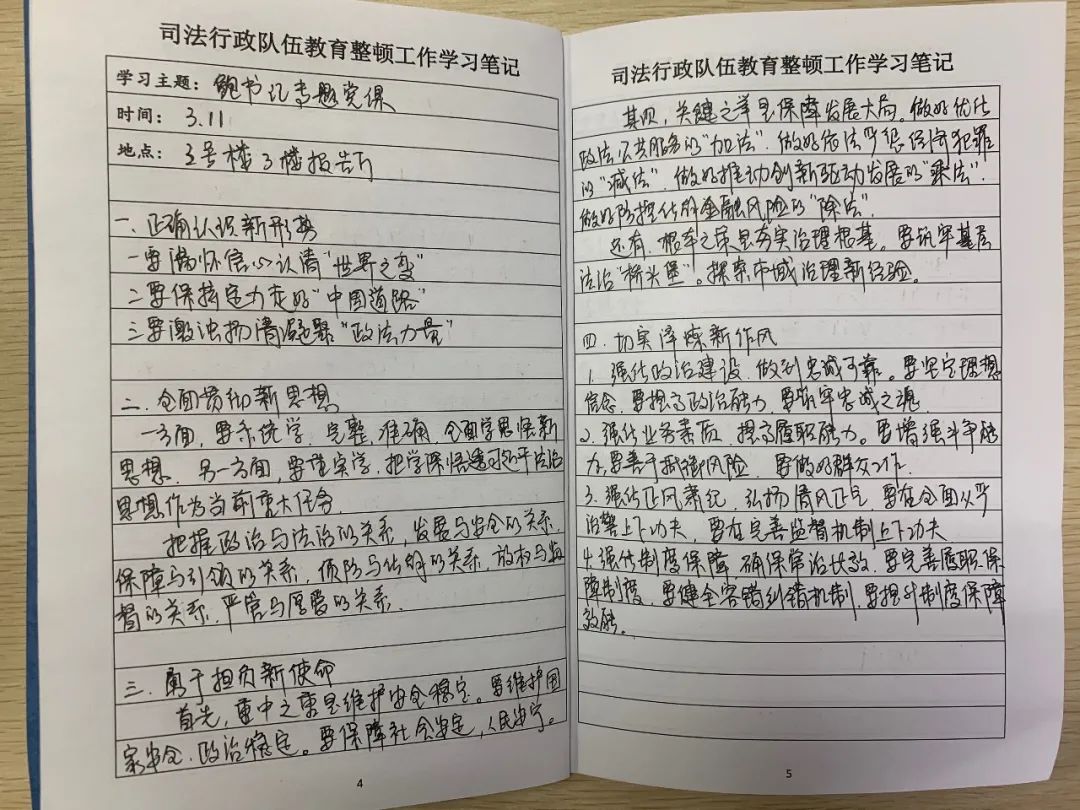 司法行政队伍教育整顿工作学习笔记
学习主题：鲍书记专题党课
时间：3.11
地点：3号楼3楼报告厅
一、正确认识新形势
一要满怀信心认清“世界之变”
二要保持定力走好“中国道路”
三要激浊扬清凝聚“政法力量”
二、全面贯彻新思想
一方面，要系统学，完整，准确，全面学思悟新
思想，另一方面，要重实学，把学深悟透习近平法治
思想作为当前重大任务
把握政治与法治的关系，发展与安全的关系，
保障与引领的关系，预防与化解的关系，放权与监
督的关系，严管与厚爱的关系.
三、勇于担负新使命
首先，重中之重是维护安全稳定。要维护国
家安全、政治稳定。要保障社会安定，人民安宁。
4
司法行政队伍教育整顿工作学习笔记
其次，关键之举是保障发展大局。做好优化
政法公共服务的“加法”，做好依法严惩侵害犯罪
的“减法”，做好推动创新驱动发展的“乘法”，
做好防控化解金融风险的“除法”.
还有，根本之策是夯实治理根基。要筑牢基层
法治“桥头堡”。探索市域治理新经验。
四、切实淬炼新作风
1. 强化政治建设，做到忠诚可靠。要坚定理想
信念，要提高政治能力，要筑牢忠诚之魂.
2. 强化业务素质，提高履职能力。要增强斗争能
力，要善于抵御风险，要做好群众工作.
3. 强化正风肃纪，弘扬清风正气，要在全面从严
治警上下功夫，要在完善监督机制上下功夫
4. 强化制度保障，确保常治长效，要完善履职保
障制度，要健全容错纠错机制，要提升制度保障
效能。
5